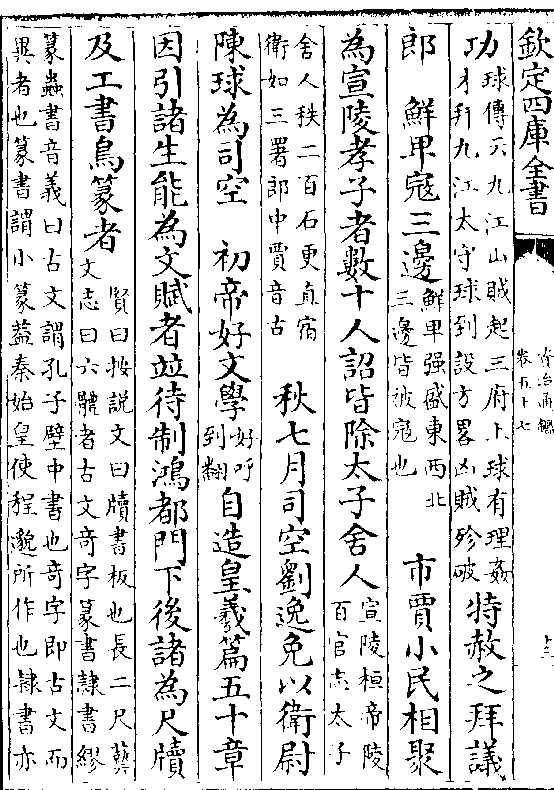 欽定四庫全書
資治通鑑
卷五十七
功
球傳云九江山賊起三府上球有理姦
才拜九江太守球到設方畧凶賊殄破
特赦之拜議
郎　鮮卑寇三邊
鮮卑强盛東西北
三邊皆被寇也
市賈小民相聚
為宣陵孝子者數十人詔皆除太子舍人
宣陵桓帝陵
百官志太子
舍人秩二百石更直宿
衛如三署郎中賈音古
秋七月司空劉逸免以衛尉
陳球為司空　初帝好文學
好呼
到翻
自造皇羲篇五十章
因引諸生能為文賦者並待制鴻都門下後諸為尺牘
及工書鳥篆者
賢曰按説文曰牘書板也長二尺藝
文志曰六體者古文竒字篆書隸書繆
篆蟲書音義曰古文謂孔子壁中書也竒字即古文而
異者也篆書謂小篆葢秦始皇使程邈所作也隸書亦